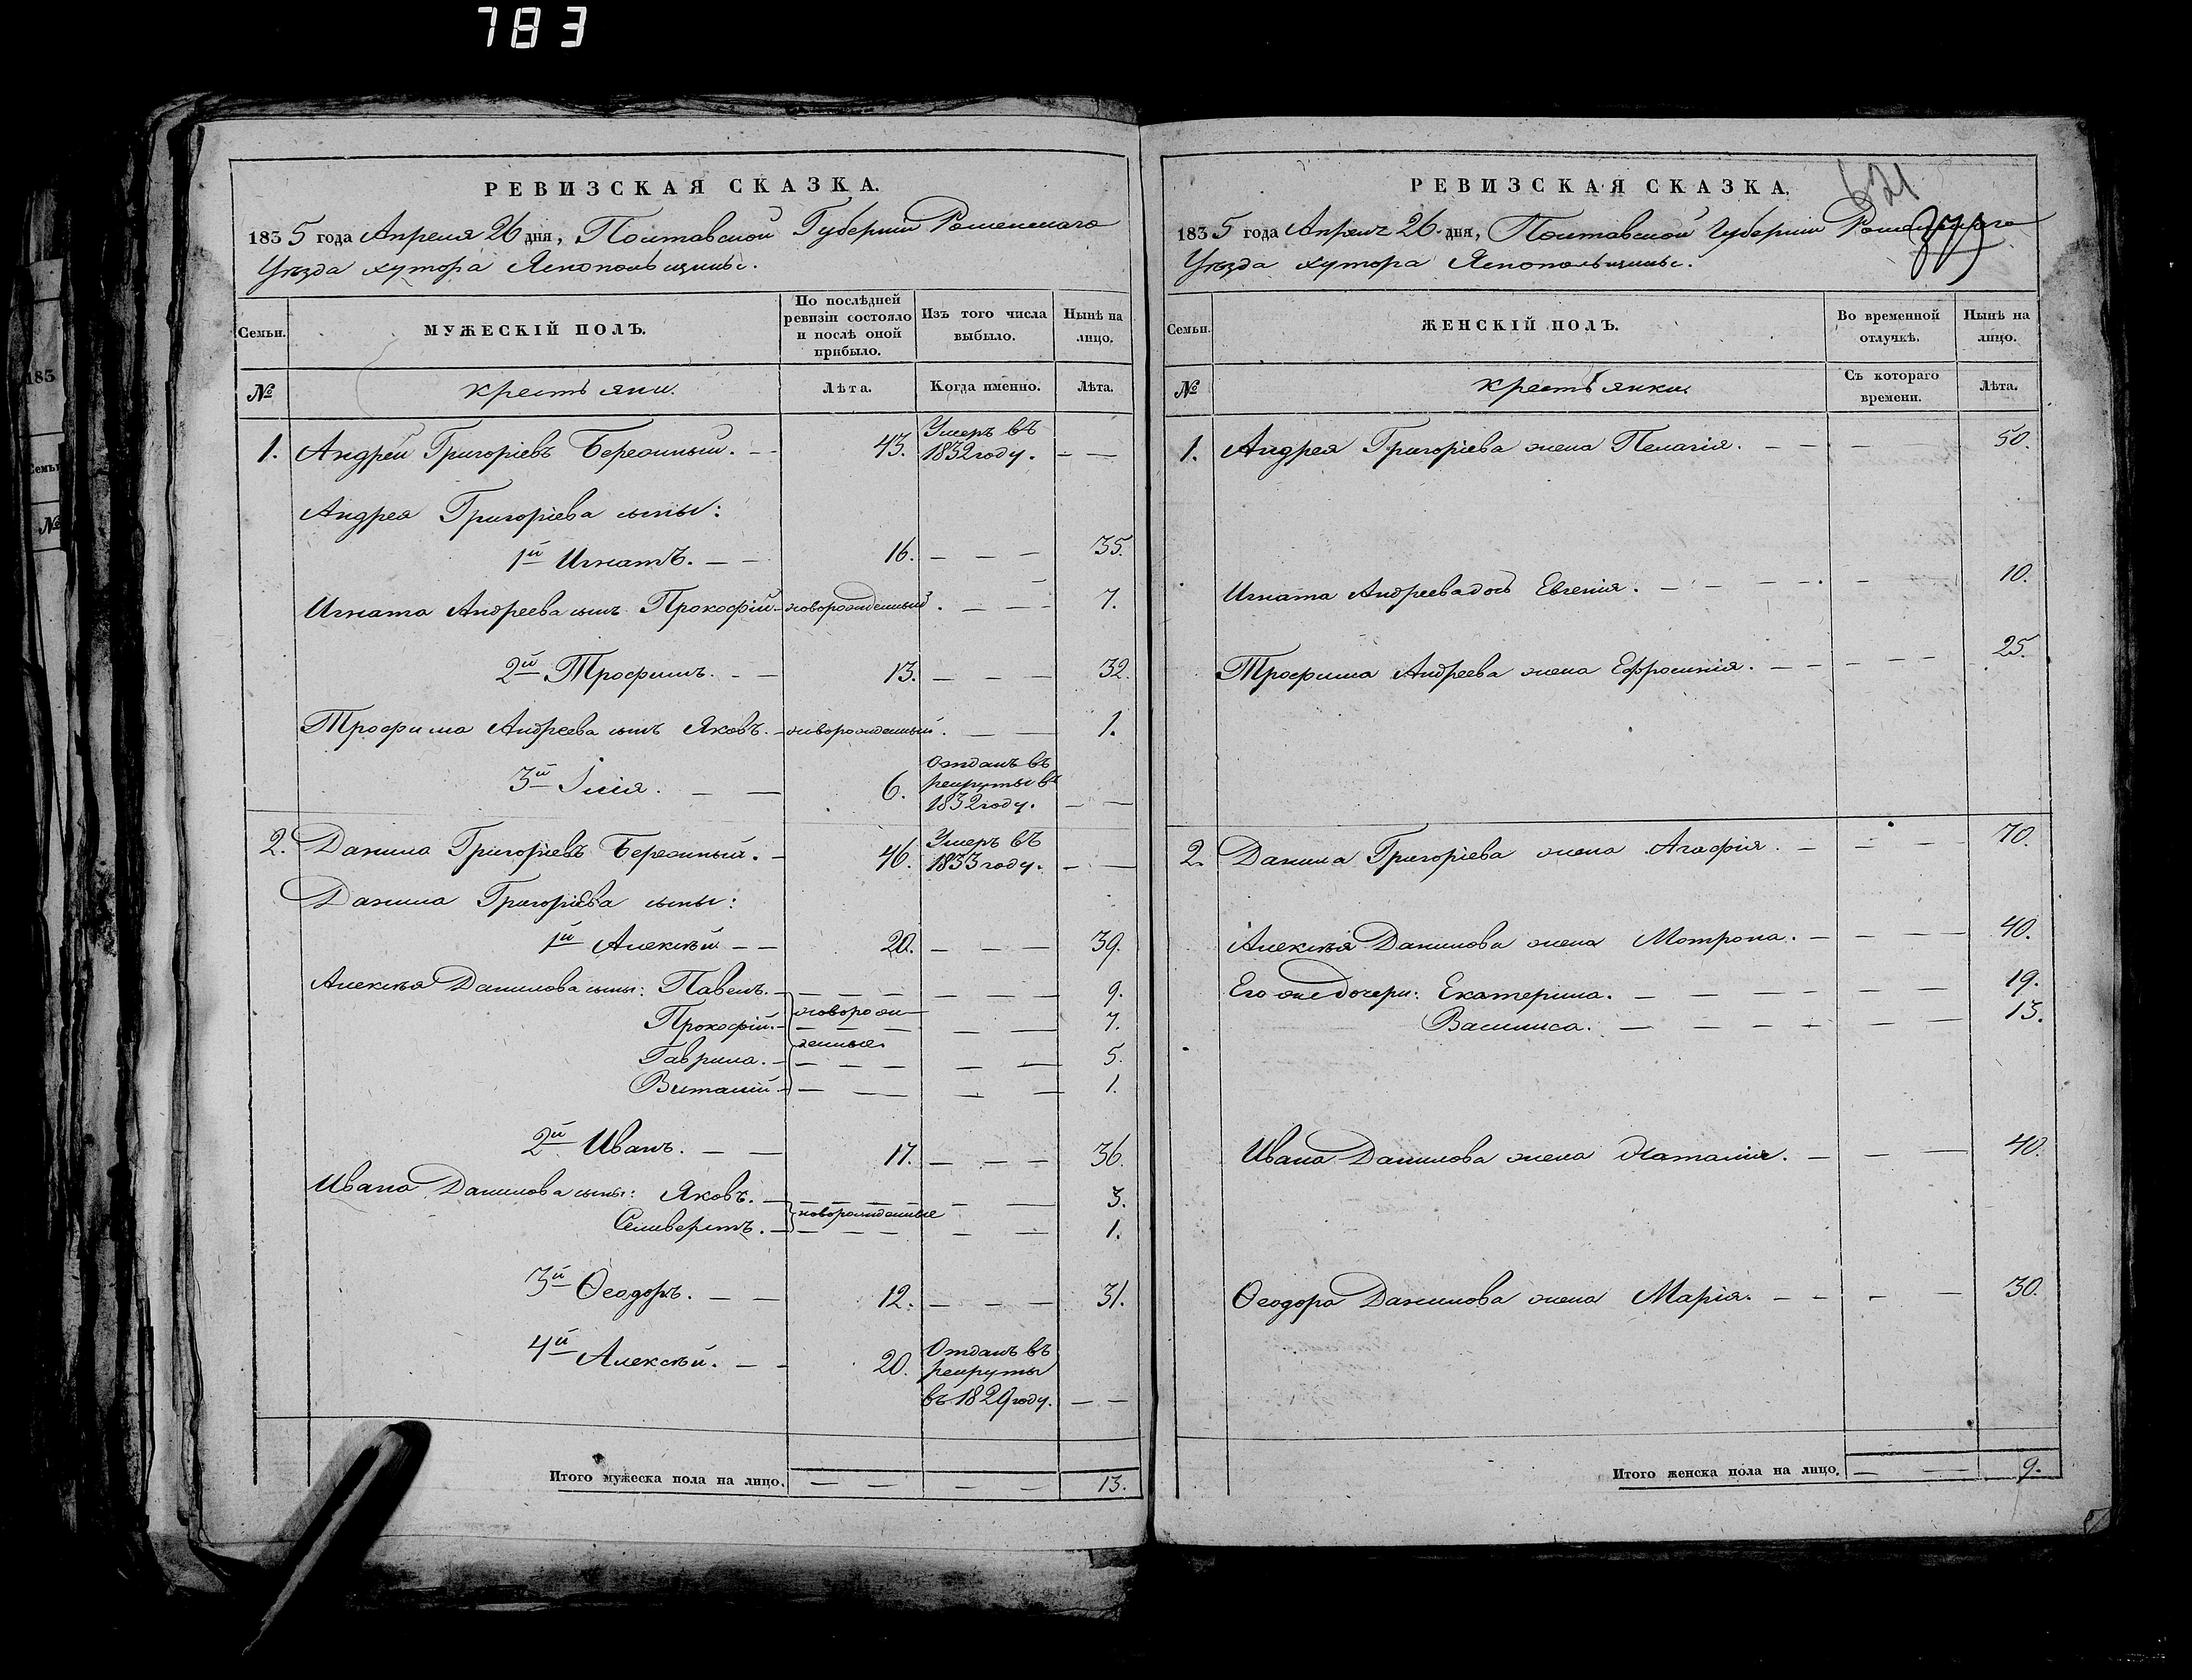 783
РЕВИЗСКАЯ СКАЗКА.
1835 года Апреля 26 дня, Полтавской Губерніи Роменскаго
Уѣзда хутора
Семьи.
МУЖЕСКІЙ ПОЛЪ.
По послѣдней ревизіи состояло и послѣ оной прибыло.
Изъ того числа выбыло.
Нынѣ на лицо.
№
крестьяни.
Лѣта.
Когда именно.
Лѣта.
1. Андрей Григоріевъ 43. Умеръ въ 1832 году. — —
Андрея Григоріева сыны:
1й Игнатъ. — — 16. — — — 35.
Игната Андреева сынъ Прокофій — новорожденный. — — — 7.
2й Трофимъ. — — 13. — — — 32.
Трофима Андреева сынъ Яковъ. — новорожденный. — — 1.
3й Илія. — — 6. Отданъ въ рекруты въ 1832 году. — —
2. Данила Григоріевъ 46. Умеръ въ 1833 году. — —
Данила Григоріева сыны:
1й Алексѣй — — 20. — — — 39.
Алексѣя Данилова сыны: Павелъ. — — — 9.
Прокофій. — новорож- — — 7.
Гаврила. — денные. — — 5.
Виталій — — — 1.
2й Иванъ. — — 17. — — — 36.
Ивана Данилова сыны: Яковъ. — — — 3.
Селиверстъ. — новорожденные — — 1.
3й Ѳеодоръ. — — 12. — — — 31.
4й Алексѣй. — — 20. Отданъ въ рекруты въ 1829 году. — —
Итого мужеска пола на лицо. — — — — 13.
621
РЕВИЗСКАЯ СКАЗКА.
1835 года Апрелъ 26 дня, Полтавской Губерніи Роменскаго
Уѣзда хутора
Семьи.
ЖЕНСКІЙ ПОЛЪ.
Во временной отлучкѣ.
Нынѣ на лицо.
№
крестьянки.
Съ котораго времени.
Лѣта.
1. Андрея Григоріева жена Пелагія. — — — 50.
Игната Андреева дочь Евгенія. — — — 10.
Трофима Андреева жена Ефросинія. — — — 25.
2. Данила Григоріева жена Агафія. — — — 70.
Алексѣя Данилова жена Мотрона. — — — 40.
Его же дочери: Екатерина. — — — 19.
Василиса. — — — 13.
Ивана Данилова жена Наталія. — — — 40.
Ѳеодора Данилова жена Марія. — — — 30.
Итого женска пола на лицо. — — 9.